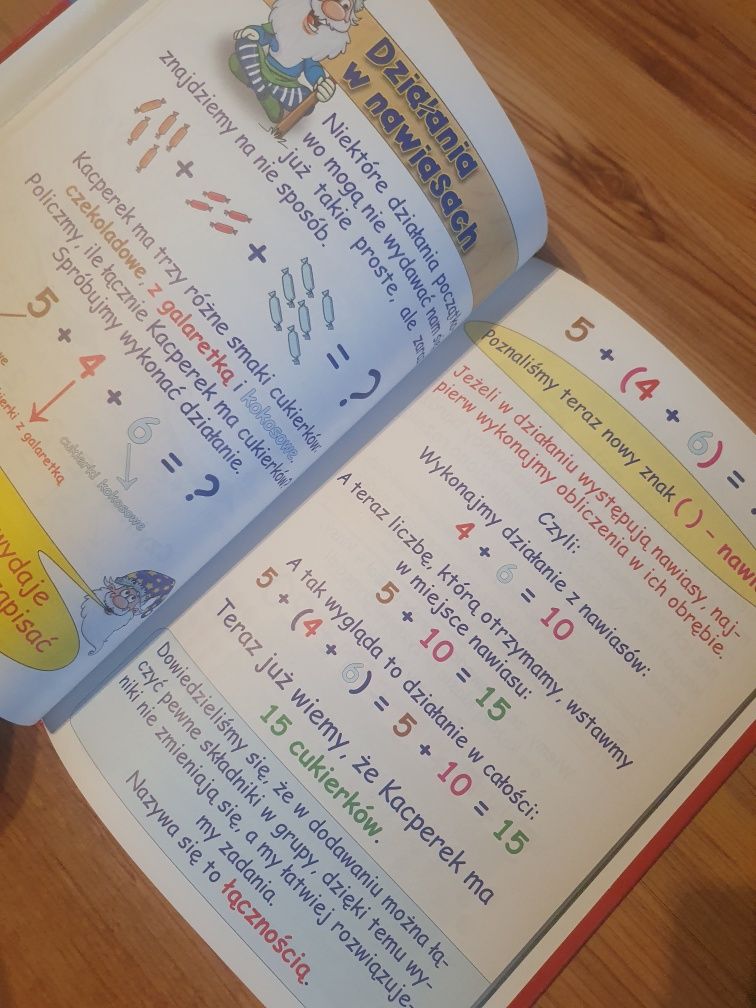 Działania
w nawiasach
Niektóre działania
wo mogą nie wydawać nam
już takie proste, ale
znajdziemy na nie sposób.
+ + = ?
Kacperek ma trzy różne smaki cukierków:
czekoladowe, z galaretką i kokosowe.
Policzmy, ile łącznie Kacperek ma cukierków?
Spróbujmy wykonać działanie.
5 + 4 + 6 = ?
z galaretką
cukierki kokosowe
wydaje
zapisać
5 + (4 + 6) =
Poznaliśmy teraz nowy znak ( ) –
Jeżeli w działaniu występują nawiasy, naj-
pierw wykonajmy obliczenia w ich obrębie.
Czyli:
Wykonajmy działanie z nawiasów:
4 + 6 = 10
A teraz liczbę, którą otrzymamy, wstawmy
w miejsce nawiasu:
5 + 10 = 15
A tak wygląda to działanie w całości:
5 + (4 + 6) = 5 + 10 = 15
Teraz już wiemy, że Kacperek ma
15 cukierków.
Dowiedzieliśmy się, że w dodawaniu można łą-
czyć pewne składniki w grupy, dzięki temu wy-
niki nie zmieniają się, a my łatwiej rozwiązuje-
my zadania.
Nazywa się to łącznością.